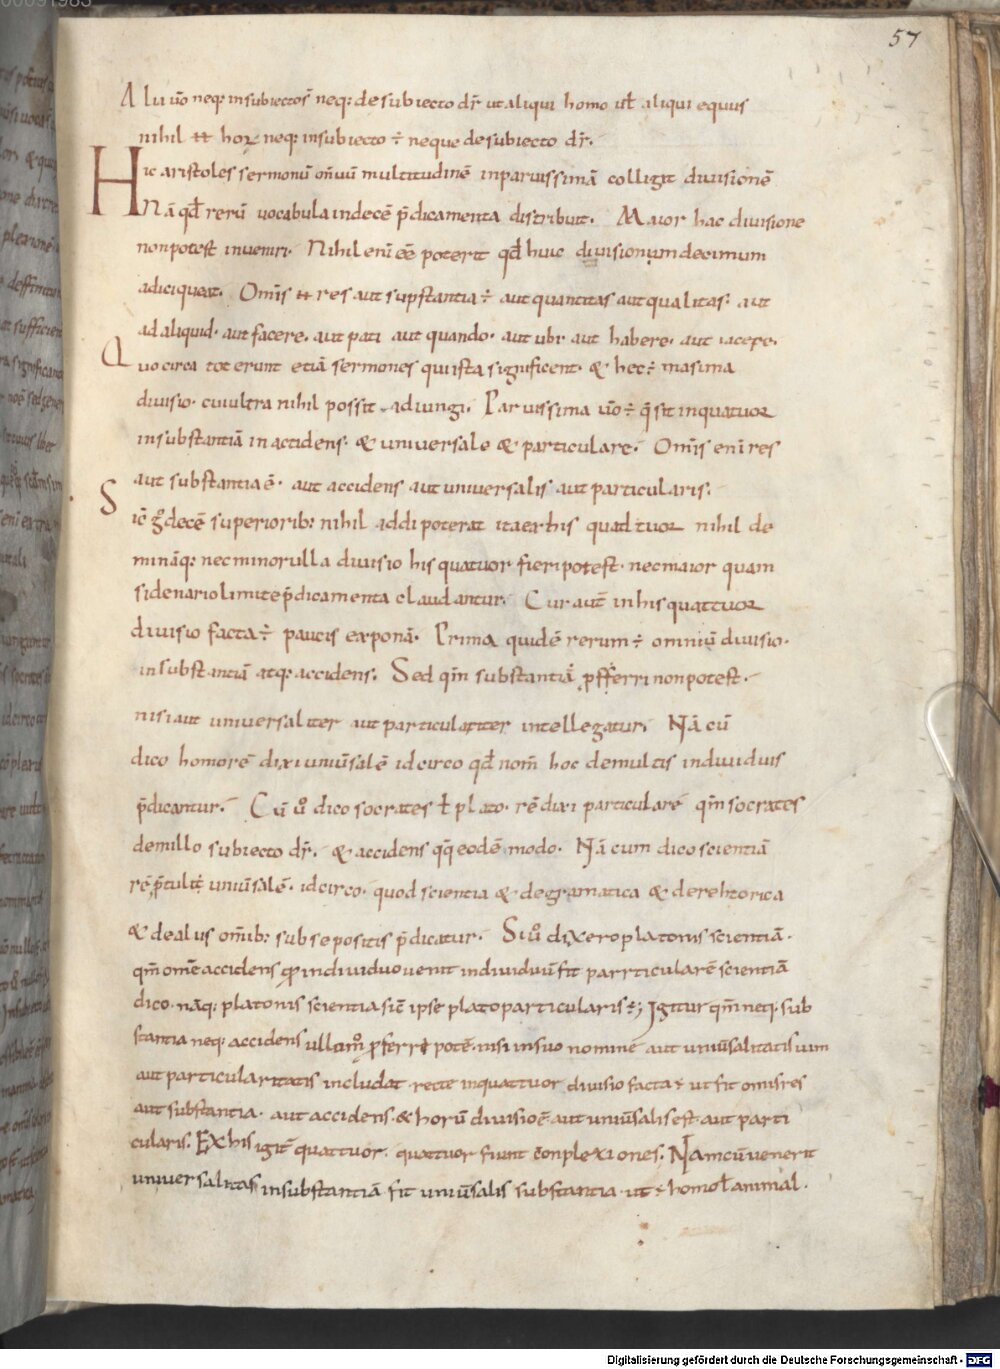 57
Alii ũo neq; insubiectoſ neq; desubiecto dr̄ ut aliqui homo uł aliqui equus
nihil ++ hoꝝ neq; insubiecto ÷ neque desubiecto dr̄.
Hic aristoles sermonū om̄iuū multitudinē inparuissimā colligit diuisionē
Nā qđ rerū uocabula indecē p̄dicamenta distribuit. Maior hac diuisione
nonpotest inueniri. Nihil eni ēē poterit qđ huic diuisionum decimum
adici queat. Om̄is ++ res aut supstantia ÷ aut quantitas aut qualitas; aut
ad aliquid. aut facere. aut pati aut quando. aut ubi. aut habere. aut iacere.
Quo circa tot erunt etiā sermones qui ista significent. & hec ÷ maxima
diuisio. cui ultra nihil possit adiungi. Paruissima ũo ÷ q̄ sit inquatuor
insubstantiā in accidens. & uniuersale & particulare. Om̄is eni res
aut substantia ē. aut accidens aut uniuersalis aut particularis;
Sic̄ g̊ decē superiorib; nihil addi poterat ita ex his quattuor nihil de
mināq; nec minor ulla diuisio his quatuor fieri potest. nec maior quam
si denario limite p̄dicamenta claudantur. Cur aut̄ inhis quattuor
diuisio facta ÷ paucis exponā. Prima quidē rerum ÷ omniū diuisio.
insubstantiā atq; accidens. Sed qm̄ substantia pfferri non potest.
nisi aut uniuersaliter aut particulariter intellegatur. Nā cū
dico homorē dixi uniūsalē idcirco qđ nom̄ hoc demultis indiuiduis
p̄dicantur. Cū u̾o dico socrates ł plato. rē dixi particularē qm̄ socrates
demillo subiecto dr̄. & accidens q̄q̄ eodē modo. Nā cum dico scientiā
rē p̄tulit uniūsalē. idcirco. quod scientia & degramatica & derehtorica
& dealiis om̄ib; sub se positis p̄dicatur. Si u̾o dixero platonis scientiā.
qm̄ omē accidens qđ indiuiduo uenit indiuiduū fit parrticularē scientiā
dico. nāq; platonis scientia sic̄ ipse plato particularis ÷; Igitur qm̄ neq; sub
stantia neq; accidens ullom̊ pferri potē. nisi insuo nomine aut uniūsalitatis uim
aut particularitatis includat. recte inquattuor diuisio facta ÷ ut sit omis res
aut substantia. aut accidens. & horū diuisioē aut uniūsalis est. aut parti
cularis. Ex his igit̄ quattuor. quattuor fiunt c̄onplexiones. Nam cū uenerit
uniuersalitas insubstantiā fit uniūsalis substantia. ut ÷ homo ł animal.
Digitalisierung gefördert durch die Deutsche Forschungsgemeinschaft - DFG